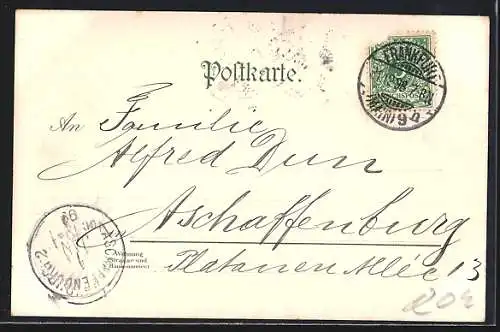 Postkarte.
FRANKFURT
(MAIN) 9
An Familie
Alfred Dun
Aschaffenburg
Wohnung
Strasse und
Hausnummer
Platanen Allée 13
ASCHAFFENBURG 2